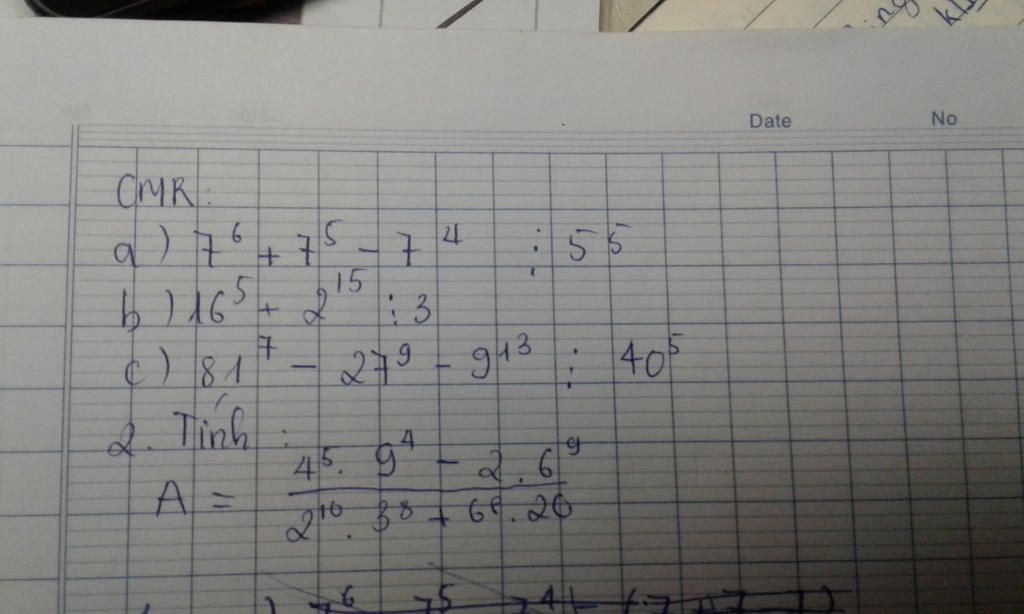 Date No
CMR:
a) 7⁶ + 7⁵ - 7⁴ ⋮ 5 5
b) 16⁵ + 2¹⁵ ⋮ 3
c) 81⁷ - 27⁹ - 9¹³ ⋮ 40⁵
2. Tính:
4⁵. 9⁴ - 2. 6⁹
A =
2¹⁰. 3⁸ + 6⁸. 20